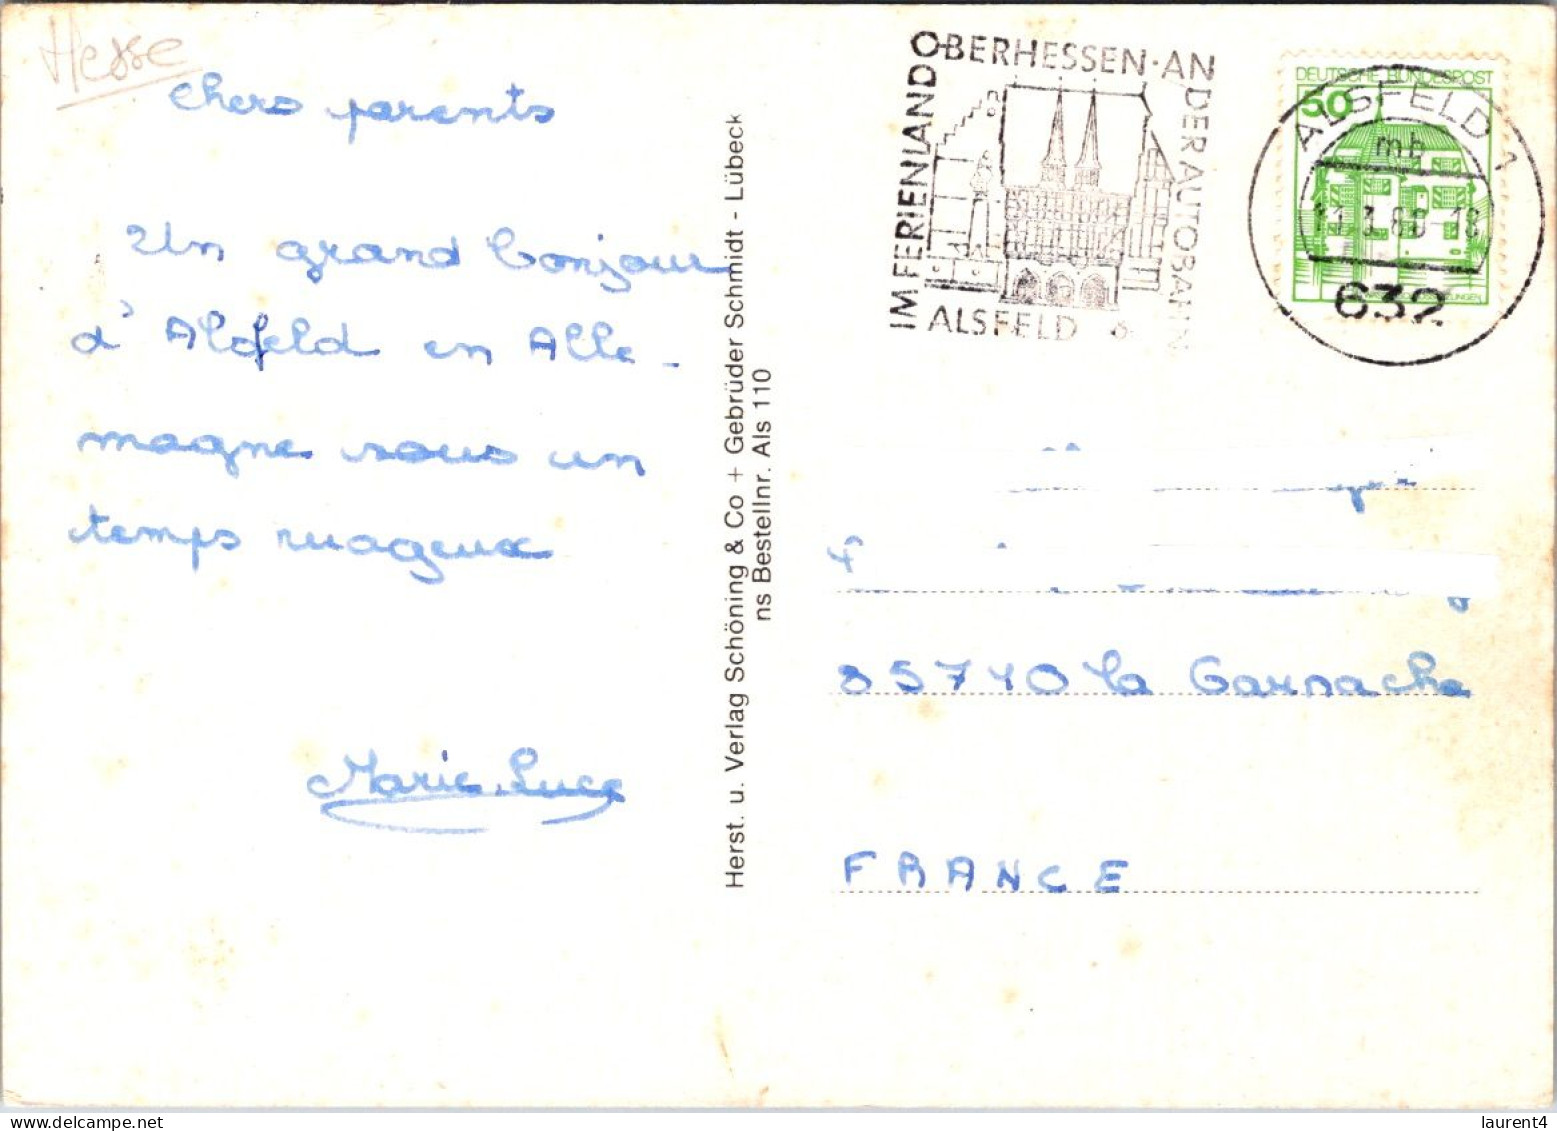 Hesse
Chers parents
Un grand bonjour
d'Alsfeld en Alle-
magne sous un
temps nuageux
Marie-Luce
Herst. u. Verlag Schöning & Co + Gebrüder Schmidt - Lübeck
ns Bestellnr. Als 110
IM FERIENLAND OBERHESSEN·AN DER AUTOBAHN
ALSFELD
DEUTSCHE BUNDESPOST
50
ALSFELD 1
mb
632
85710 la Garnache
FRANCE
laurent4